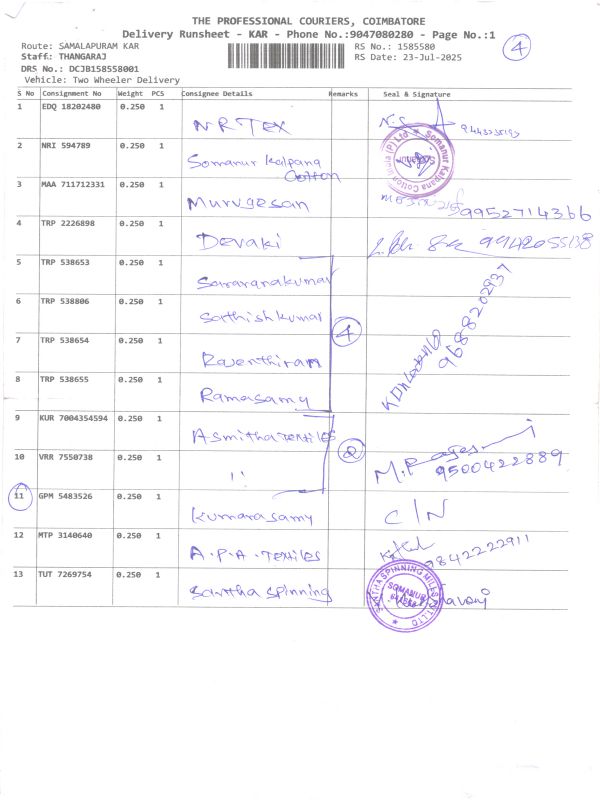 THE PROFESSIONAL COURIERS, COIMBATORE
Delivery Runsheet - KAR - Phone No.:9047080280 - Page No.:1
Route: SAMALAPURAM KAR
RS No.: 1585580
4
Staff: THANGARAJ
RS Date: 23-Jul-2025
DRS No.: DCJB158558001
Vehicle: Two Wheeler Delivery
S No Consignment No Weight PCS Consignee Details Remarks Seal & Signature
1 EDQ 18202480 0.250 1 N R TEX
2 NRI 594789 0.250 1 Somanur Kalpana Cotton
3 MAA 711712331 0.250 1 Murugesan 9952714366
4 TRP 2226898 0.250 1 Devaki 9942055138
5 TRP 538653 0.250 1 Saravanakumar
6 TRP 538806 0.250 1 Sathishkumar 4 9688202937
7 TRP 538654 0.250 1 Raventhiram
8 TRP 538655 0.250 1 Ramasamy
9 KUR 7004354594 0.250 1 Asmitha Textiles
2
10 VRR 7550738 0.250 1 '' 9500422889
11 GPM 5483526 0.250 1 Kumarasamy C/N
12 MTP 3140640 0.250 1 A.P.A. Textiles 9842222911
13 TUT 7269754 0.250 1 Santha Spinning